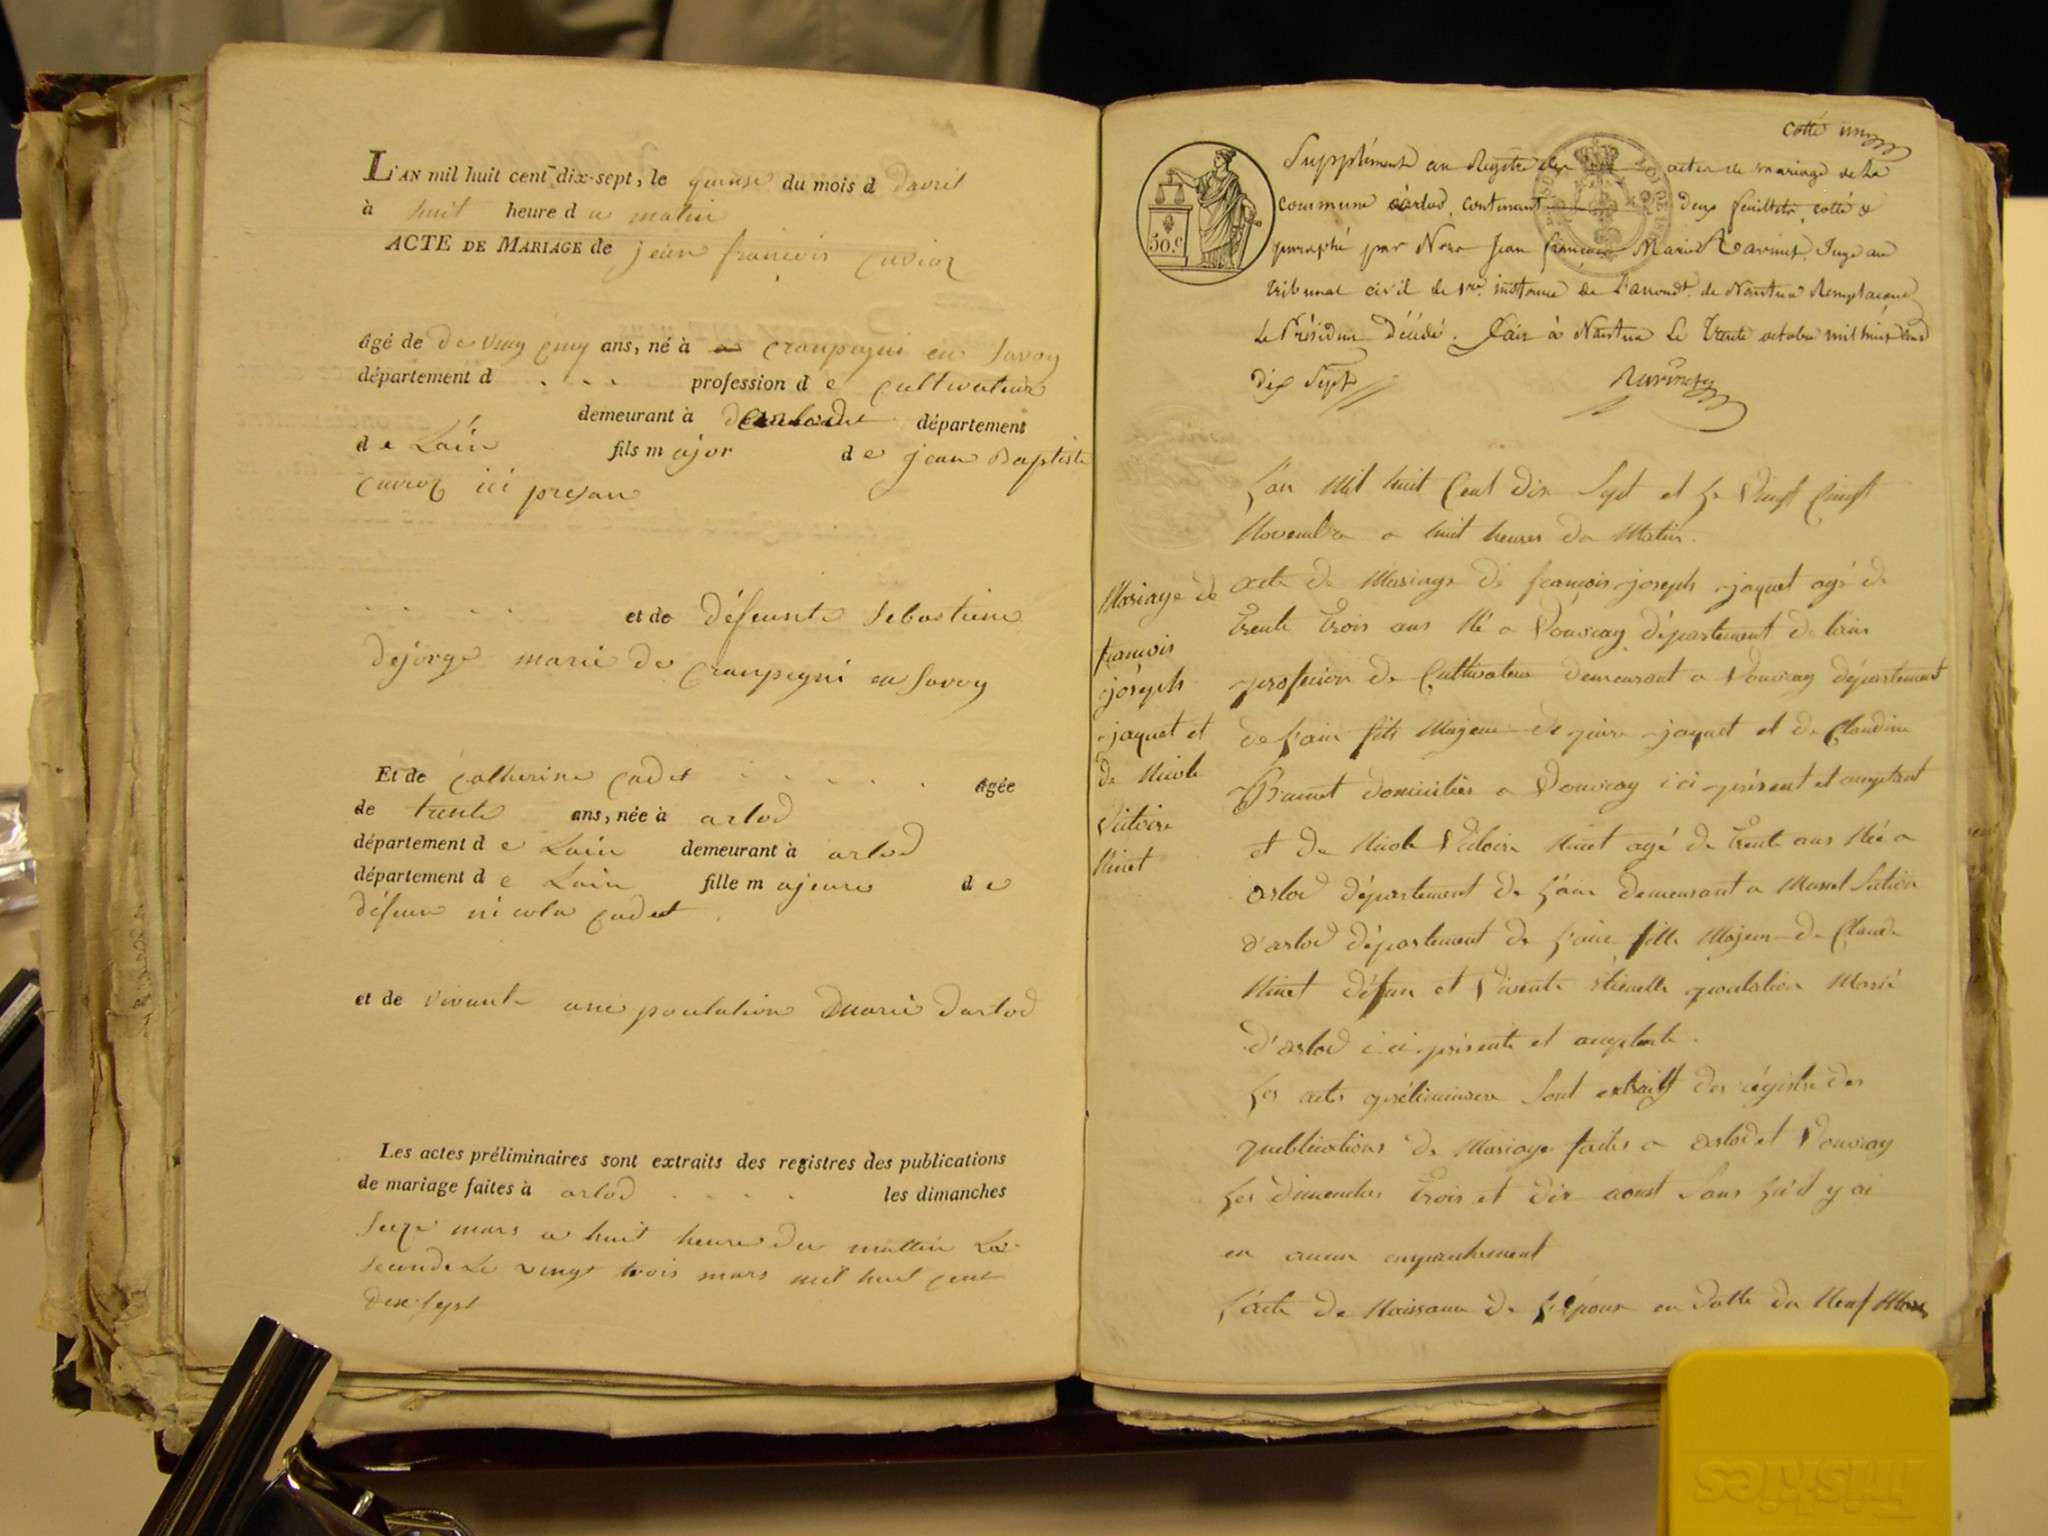 L'AN mil huit cent dix-sept, le quinze du mois d davril
à huit heure d u matin
ACTE DE MARIAGE de jean françois cuvioz
âgé de de vingt cinq ans, né à en savoy
département d . . . . profession d e cultivateur
demeurant à département
d e Lain fils m ajor d e jean Baptiste
cuvioz ici presan
. . . . et de défeunte sebastiene
marié de en savoy
Et de catherine cadet . . . . . . âgée
de trente ans, née à arlod
département d e Lain demeurant à arlod
département d e Lain fille m ajeure d e
défeun nicola cadet
et de vivante marié darlod
Les actes préliminaires sont extraits des registres des publications
de mariage faites à arlod . . . . les dimanches
seize mars a huit heure du mattin La
seconde Le vingt trois mars mil huit cent
dixe sept
cotté un
Supplément au Registre des actes de mariage de La
commune d'arlod, contenant deux feuillets, cotté &
paraphé par Nous Jean françois Marie Ravinet, Juge au
tribunal civil de 1re. instance de l'arrondt. de Nantua Remplaçant
Le Président Décédé. Fait à Nantua Le Trente octobre mil huit cent
dix Sept
Ravinet
50.c
L'an Mil huit Cent dix Sept et Le Vingt Cinq
Novembre a huit heures du Matin.
acte de Mariage de françois joseph jaquet agé de
trente trois ans Né a Vouvray département de lain
profession de Cultivateur demeurant a Vouvray département
de L'ain fils Majeur de jaquet et de Claudine
domiciliés a Vouvray ici présent et
et de Nicole Victoire Ninet agé de trente ans Née a
arlod département de L'ain demeurant a Mussel Section
d'arlod département de L'ain fille Majeur de Claude
Ninet défun et Vivante poulation Marié
d'arlod ici présente et
Les actes préliminaire Sont extraits des régistre des
publications de Mariage faites a arlod et Vouvray
Les dimenches trois et dix aoust Sans qu'il y ai
eu aucun
L'acte de Naissance de L'épour en datte du Neuf Mars
Mariage de
francois
joseph
jaquet et
de Nicole
Victoire
Ninet
Friskies